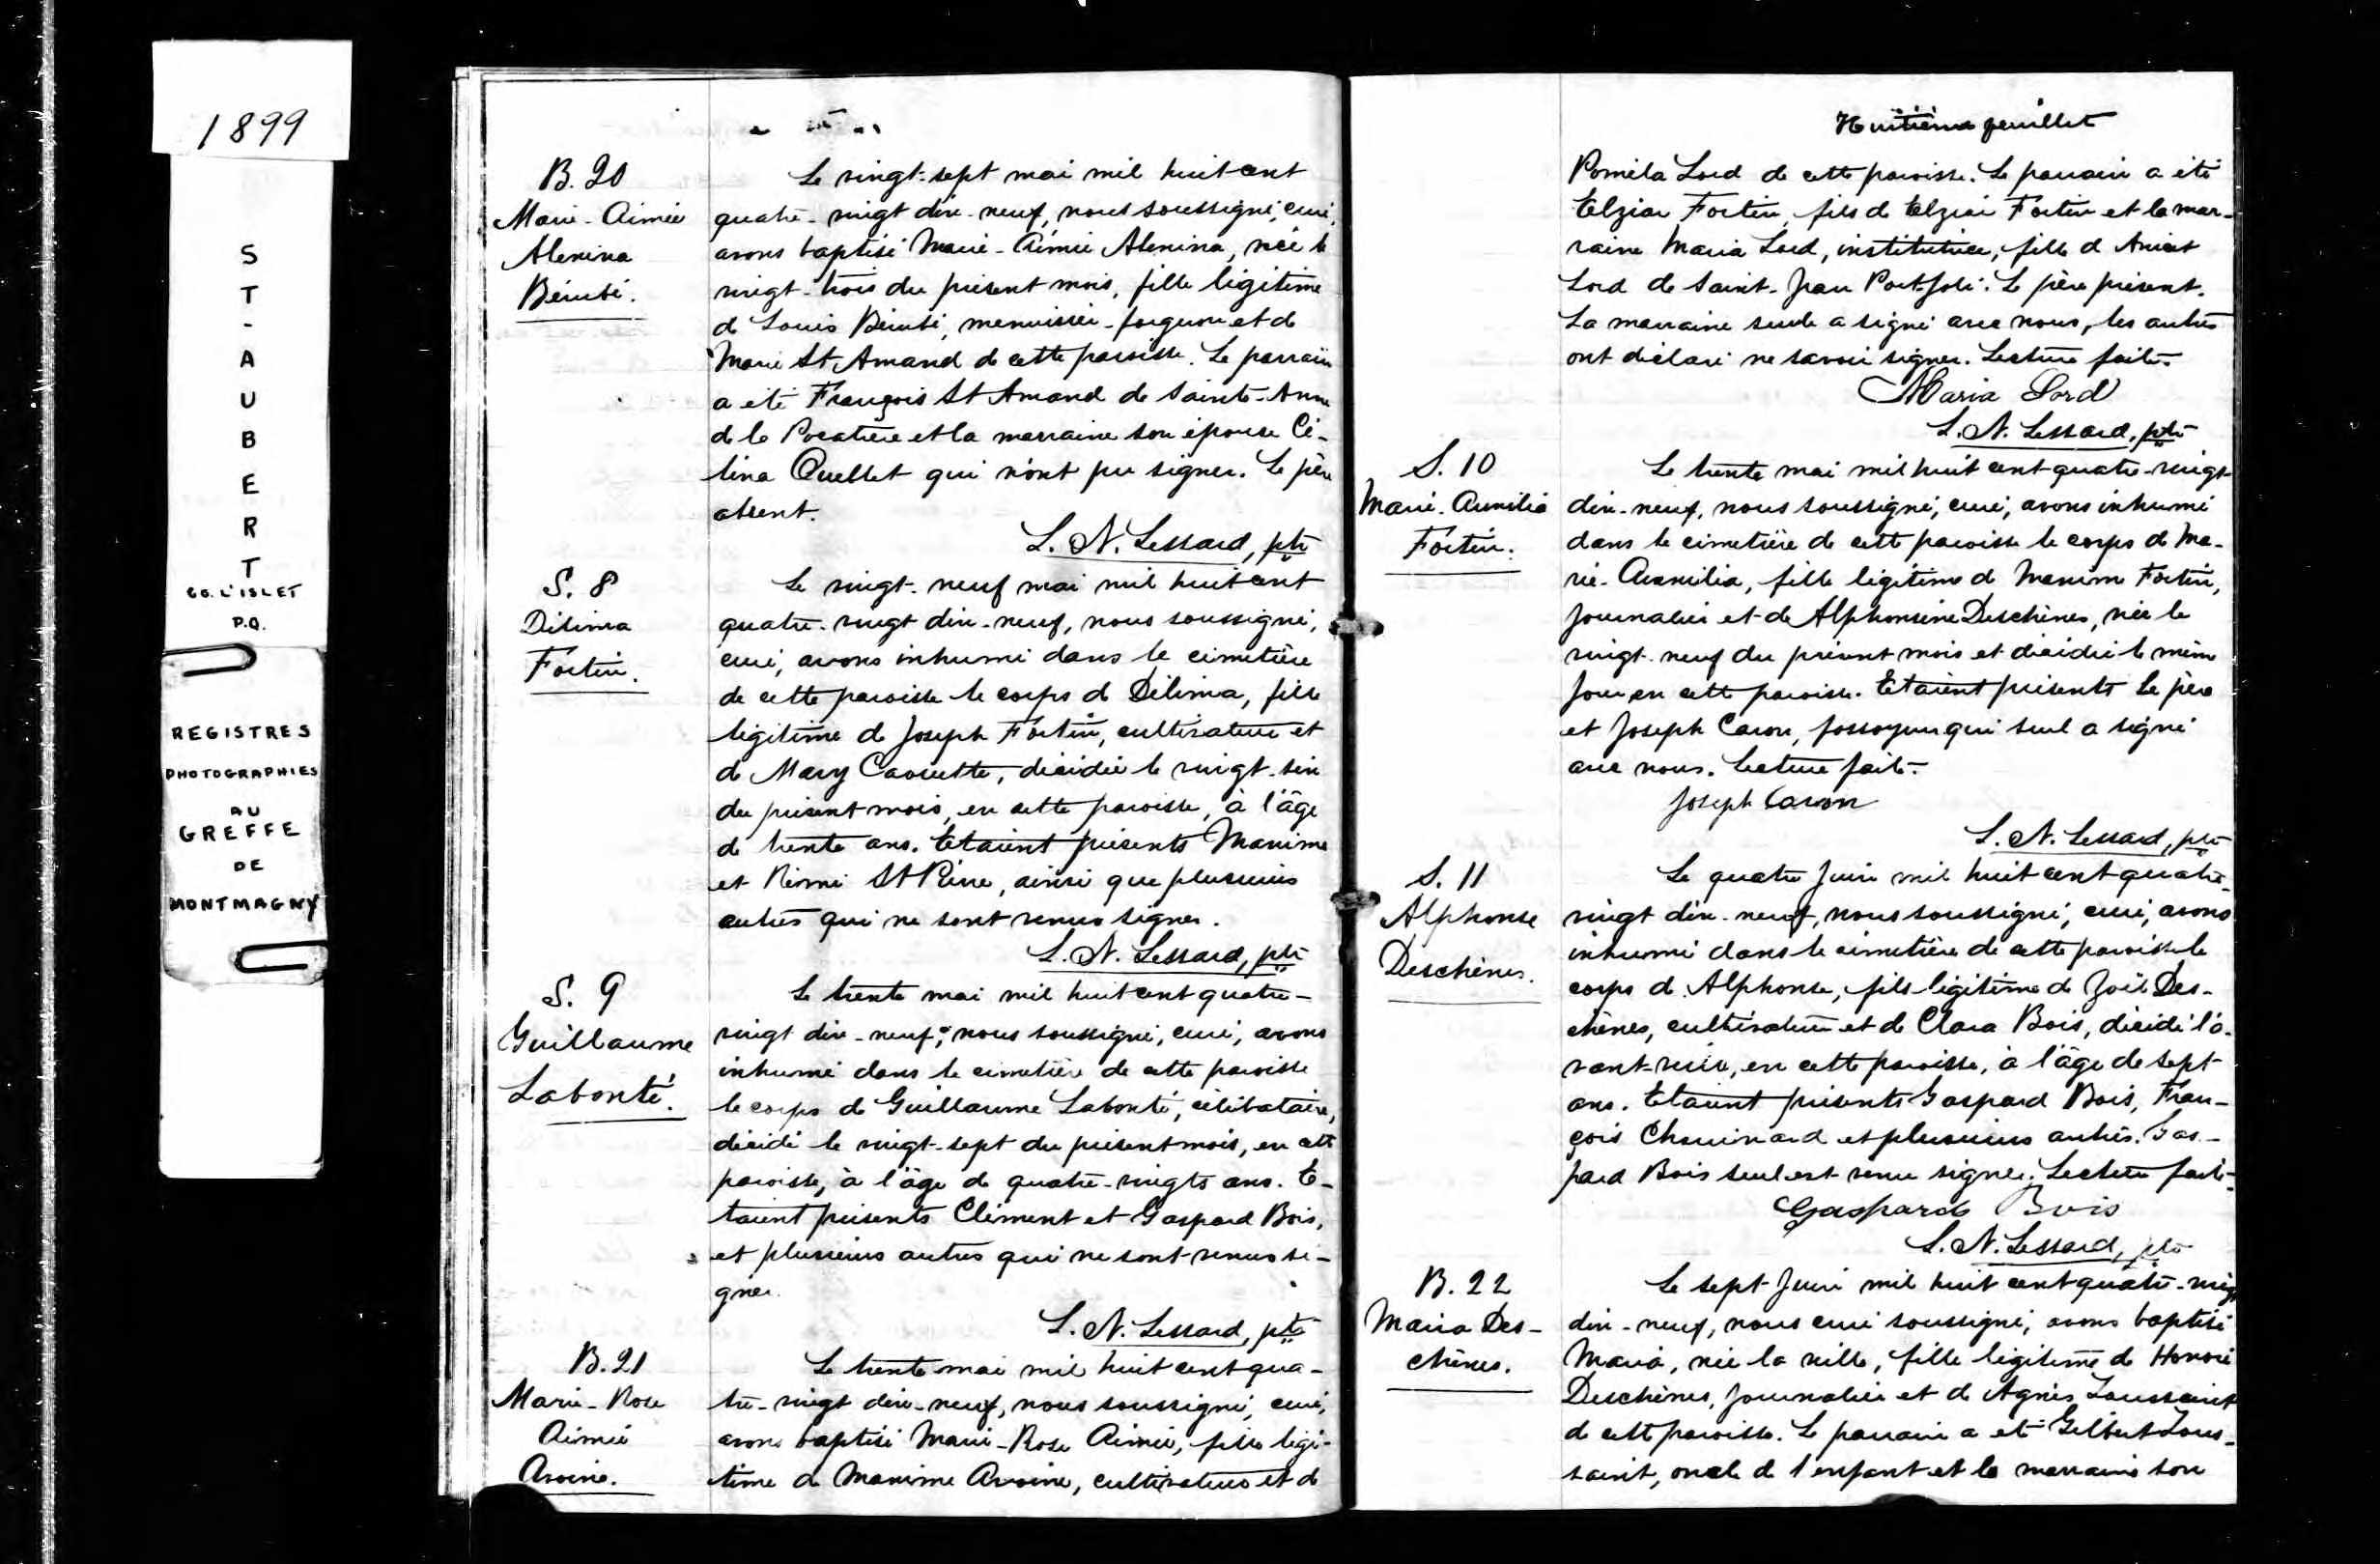 1899
ST-AUBERT
CO. L'ISLET
P.Q.
REGISTRES
PHOTOGRAPHIES
AU
GREFFE
DE
MONTMAGNY
B. 20
Marie-Aimée
Alenina
Bérubé.
Le vingt-sept mai mil huit cent
quatre-vingt dix-neuf, nous soussigné, curé,
avons baptisé Marie-Aimée Alenina, née le
vingt-trois du présent mois, fille légitime
de Louis Bérubé, menuisier-forgeron et de
Marie St Amand de cette paroisse. Le parrain
a été François St Amand de Sainte-Anne
de la Pocatière et la marraine son épouse Cé-
lina Ouellet qui n'ont pu signer. Le père
absent.
L. N. Lessard, ptre
S. 8
Délima
Fortin.
Le vingt-neuf mai mil huit cent
quatre-vingt dix-neuf, nous soussigné,
curé, avons inhumé dans le cimetière
de cette paroisse le corps de Délima, fille
légitime de Joseph Fortin, cultivateur et
de Mary Caouette, décédée le vingt-six
du présent mois, en cette paroisse, à l'âge
de trente ans. Etaient présents Maxime
et Rémi St Pierre, ainsi que plusieurs
autres qui ne sont venus signer.
L. N. Lessard, ptre
S. 9
Guillaume
Labonté.
Le trente mai mil huit cent quatre-
vingt dix-neuf, nous soussigné, curé, avons
inhumé dans le cimetière de cette paroisse
le corps de Guillaume Labonté, célibataire,
décédé le vingt-sept du présent mois, en cette
paroisse, à l'âge de quatre-vingts ans. E-
taient présents Clément et Gaspard Bois,
et plusieurs autres qui ne sont venus si-
gner.
L. N. Lessard, ptre
B. 21
Marie-Rose
Aimée
Avoine.
Le trente mai mil huit cent qua-
tre-vingt dix-neuf, nous soussigné, curé,
avons baptisé Marie-Rose Aimée, fille légi-
time de Maxime Avoine, cultivateur et de
Huitième feuillet
Poméla Lord de cette paroisse. Le parrain a été
Elzéar Fortin, fils de Elzéar Fortin et la mar-
raine Maria Lord, institutrice, fille d'Anicet
Lord de Saint-Jean Port-Joli. Le père présent.
La marraine seule a signé avec nous, les autres
ont déclaré ne savoir signer. Lecture faite.
Maria Lord
L. N. Lessard, ptre
S. 10
Marie-Aurmilia
Fortin.
Le trente mai mil huit cent quatre-vingt
dix-neuf, nous soussigné, curé, avons inhumé
dans le cimetière de cette paroisse le corps de Ma-
rie- fille légitime de Maxime Fortin,
journalier et de Alphonsine Deschênes, née le
vingt-neuf du présent mois et décédée le même
jour en cette paroisse. Etaient présents le père
et Joseph Caron, fossoyeur qui seul a signé
avec nous. Lecture faite.
Joseph Caron
L. N. Lessard, ptre
S. 11
Alphonse
Deschênes.
Le quatre Juin mil huit cent quatre-
vingt dix-neuf, nous soussigné, curé, avons
inhumé dans le cimetière de cette paroisse le
corps de Alphonse, fils légitime de Joël Des-
chênes, cultivateur et de Clara Bois, décédé l'a-
vant-veille, en cette paroisse, à l'âge de sept
ans. Etaient présents Gaspard Bois, Fran-
çois Chouinard et plusieurs autres. Gas-
pard Bois seul est venu signer. Lecture faite.
Gaspard Bois
L. N. Lessard, ptre
B. 22
Maria Des-
chênes.
Le sept Juin mil huit cent quatre-vingt
dix-neuf, nous curé soussigné, avons baptisé
Maria, née la veille, fille légitime de Honoré
Deschênes, journalier et de Agnès Toussaint
de cette paroisse. Le parrain a été Gilbert Tous-
saint, oncle de l'enfant et la marraine son